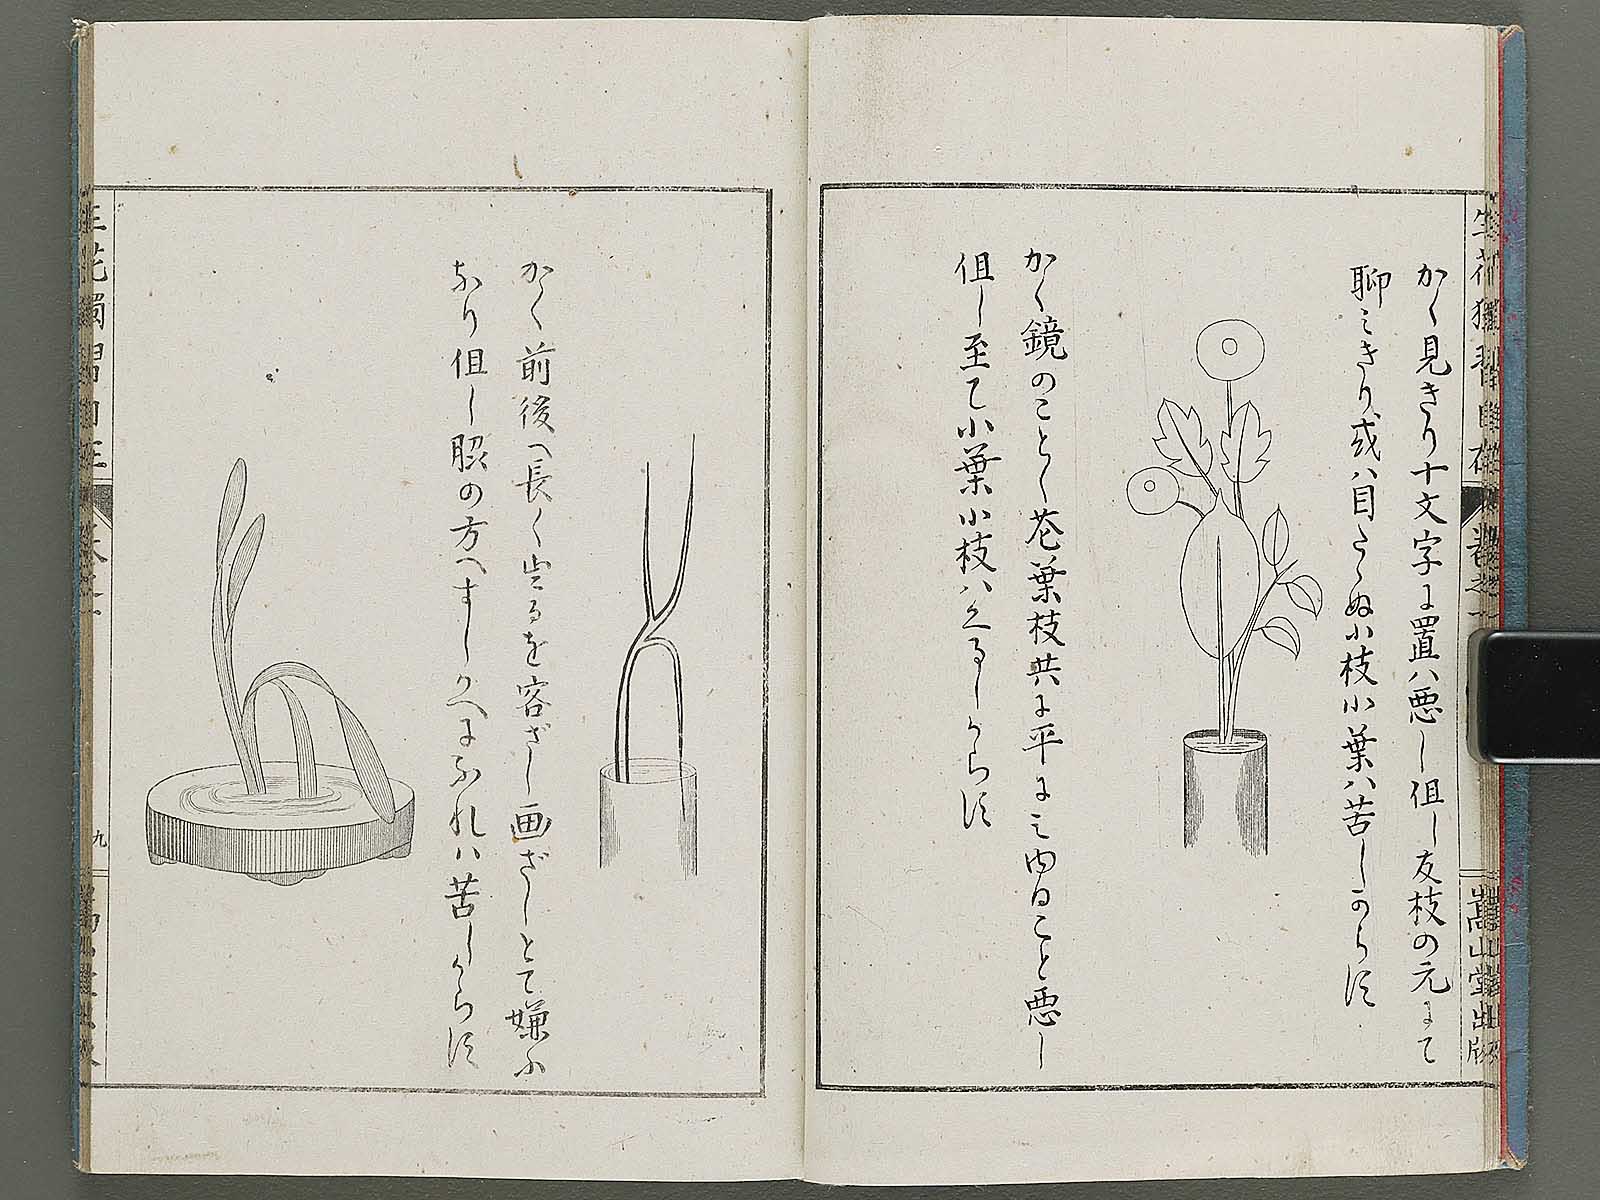 かく見きり十文字に置ハ悪し但し友枝の元にて
聊ミきり或ハ目たゝぬ小枝小葉ハ苦しからす
かく鏡のことく花葉枝共に平に之内曰こと悪し
但し至て小葉小枝ハくるしからす
かく前後へ長く出るを容ざし画ざしとて嫌ふ
なり但し脇の方へすしかへになれハ苦しからす
生花獨習自在
卷之一
嵩山堂出版
九